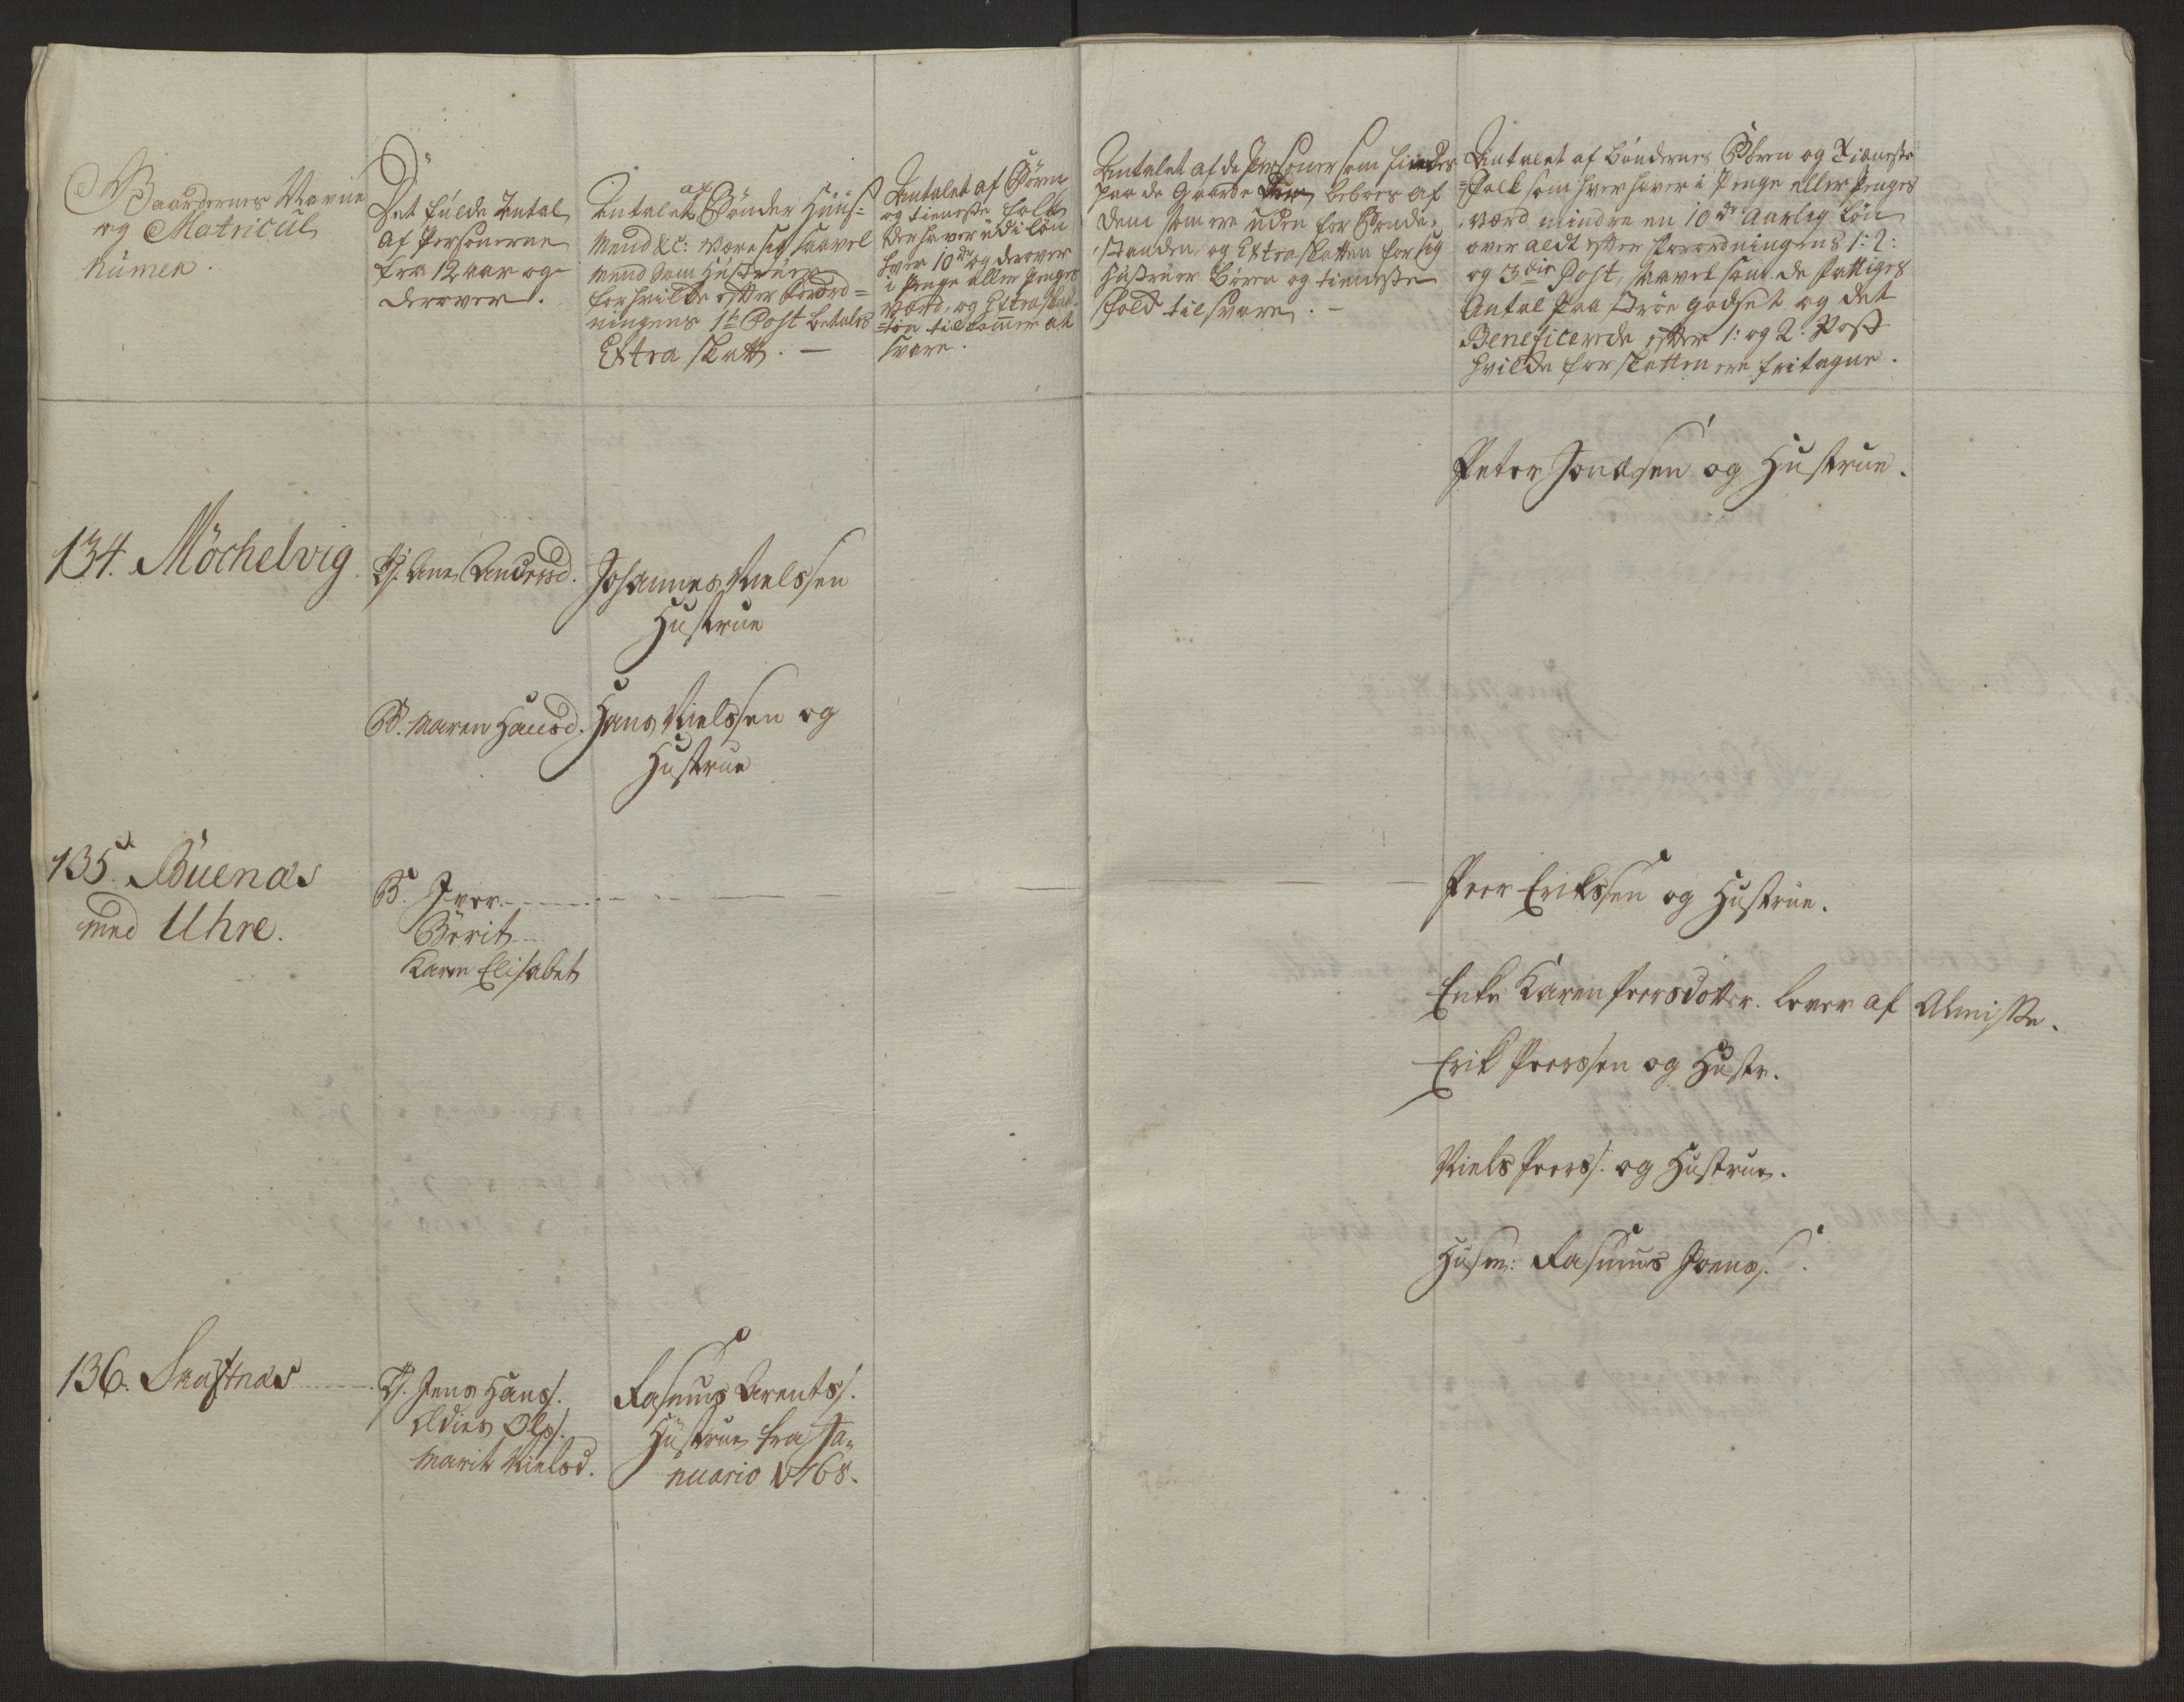 Gaardernes Navne
og Matricul
Numer.
Det fulde Antal
af Personerne
fra 12 aar og
derover.
Antalet af Bönder Huus-
mend &c: være sig saavel
mend som Hustruer
for hvilke efter Forord=
ningens 1te Post betales
Extra skatt. —
Antalet af Börn
og tieneste folk
der haver udi Lön
hver 10 dr og derover
i Penge eller Penges
værd, og Extra skat-
ten tilkommer at
svare.
Antalet af de Personer som findes
paa de Gaarde som beboes af
dem som ere uden for Bonde-
standen og Extra skatten for sig
Hustruer Börn og tieneste
folk tilsvare. —
Antalet af Böndernes Börn og Tieneste
=folk som hver haver i Penge eller Penges
værd mindre en 10 dr Aarlig Lön
over alt efter Forordningens 1: 2:
og 3die Post, saavel som de fattiges
Antal paa Ströe godset og det
Beneficerede efter 1: og 2. Post
hvilke for skatten ere fritagne.
Peter Jonassen og Hustrue.
134. Möchelvig. Tj. Ane Andersd. Johannes Nielssen
Hustrue
B. Maren Hansd. Hans Nielssen og
Hustrue
135. Buenæs
med Uhre.
B. Iver
Börit
Karen Elisabet
Peer Erikssen og Hustrue.
Enke Karen Peersdotter. lever af Almisse.
Erik Peerssen og Hustr.
Niels Peers/. og Hustrue.
Husm: Rasmus Joens/.
136. Skastnæs Tj. Jens Hans/. Rasmus Arents/.
Ols/. Hustrue fra Ja-
Marit Nielsd. nuario 1768.